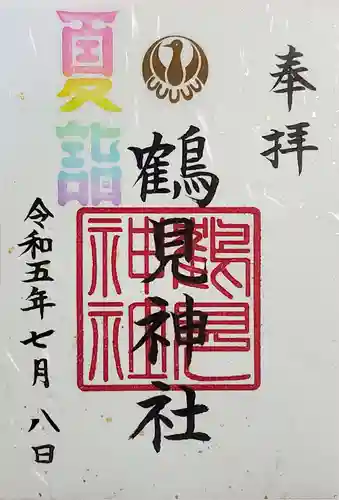 奉拝
鶴見神社
鶴見神社
夏詣
令和五年七月八日